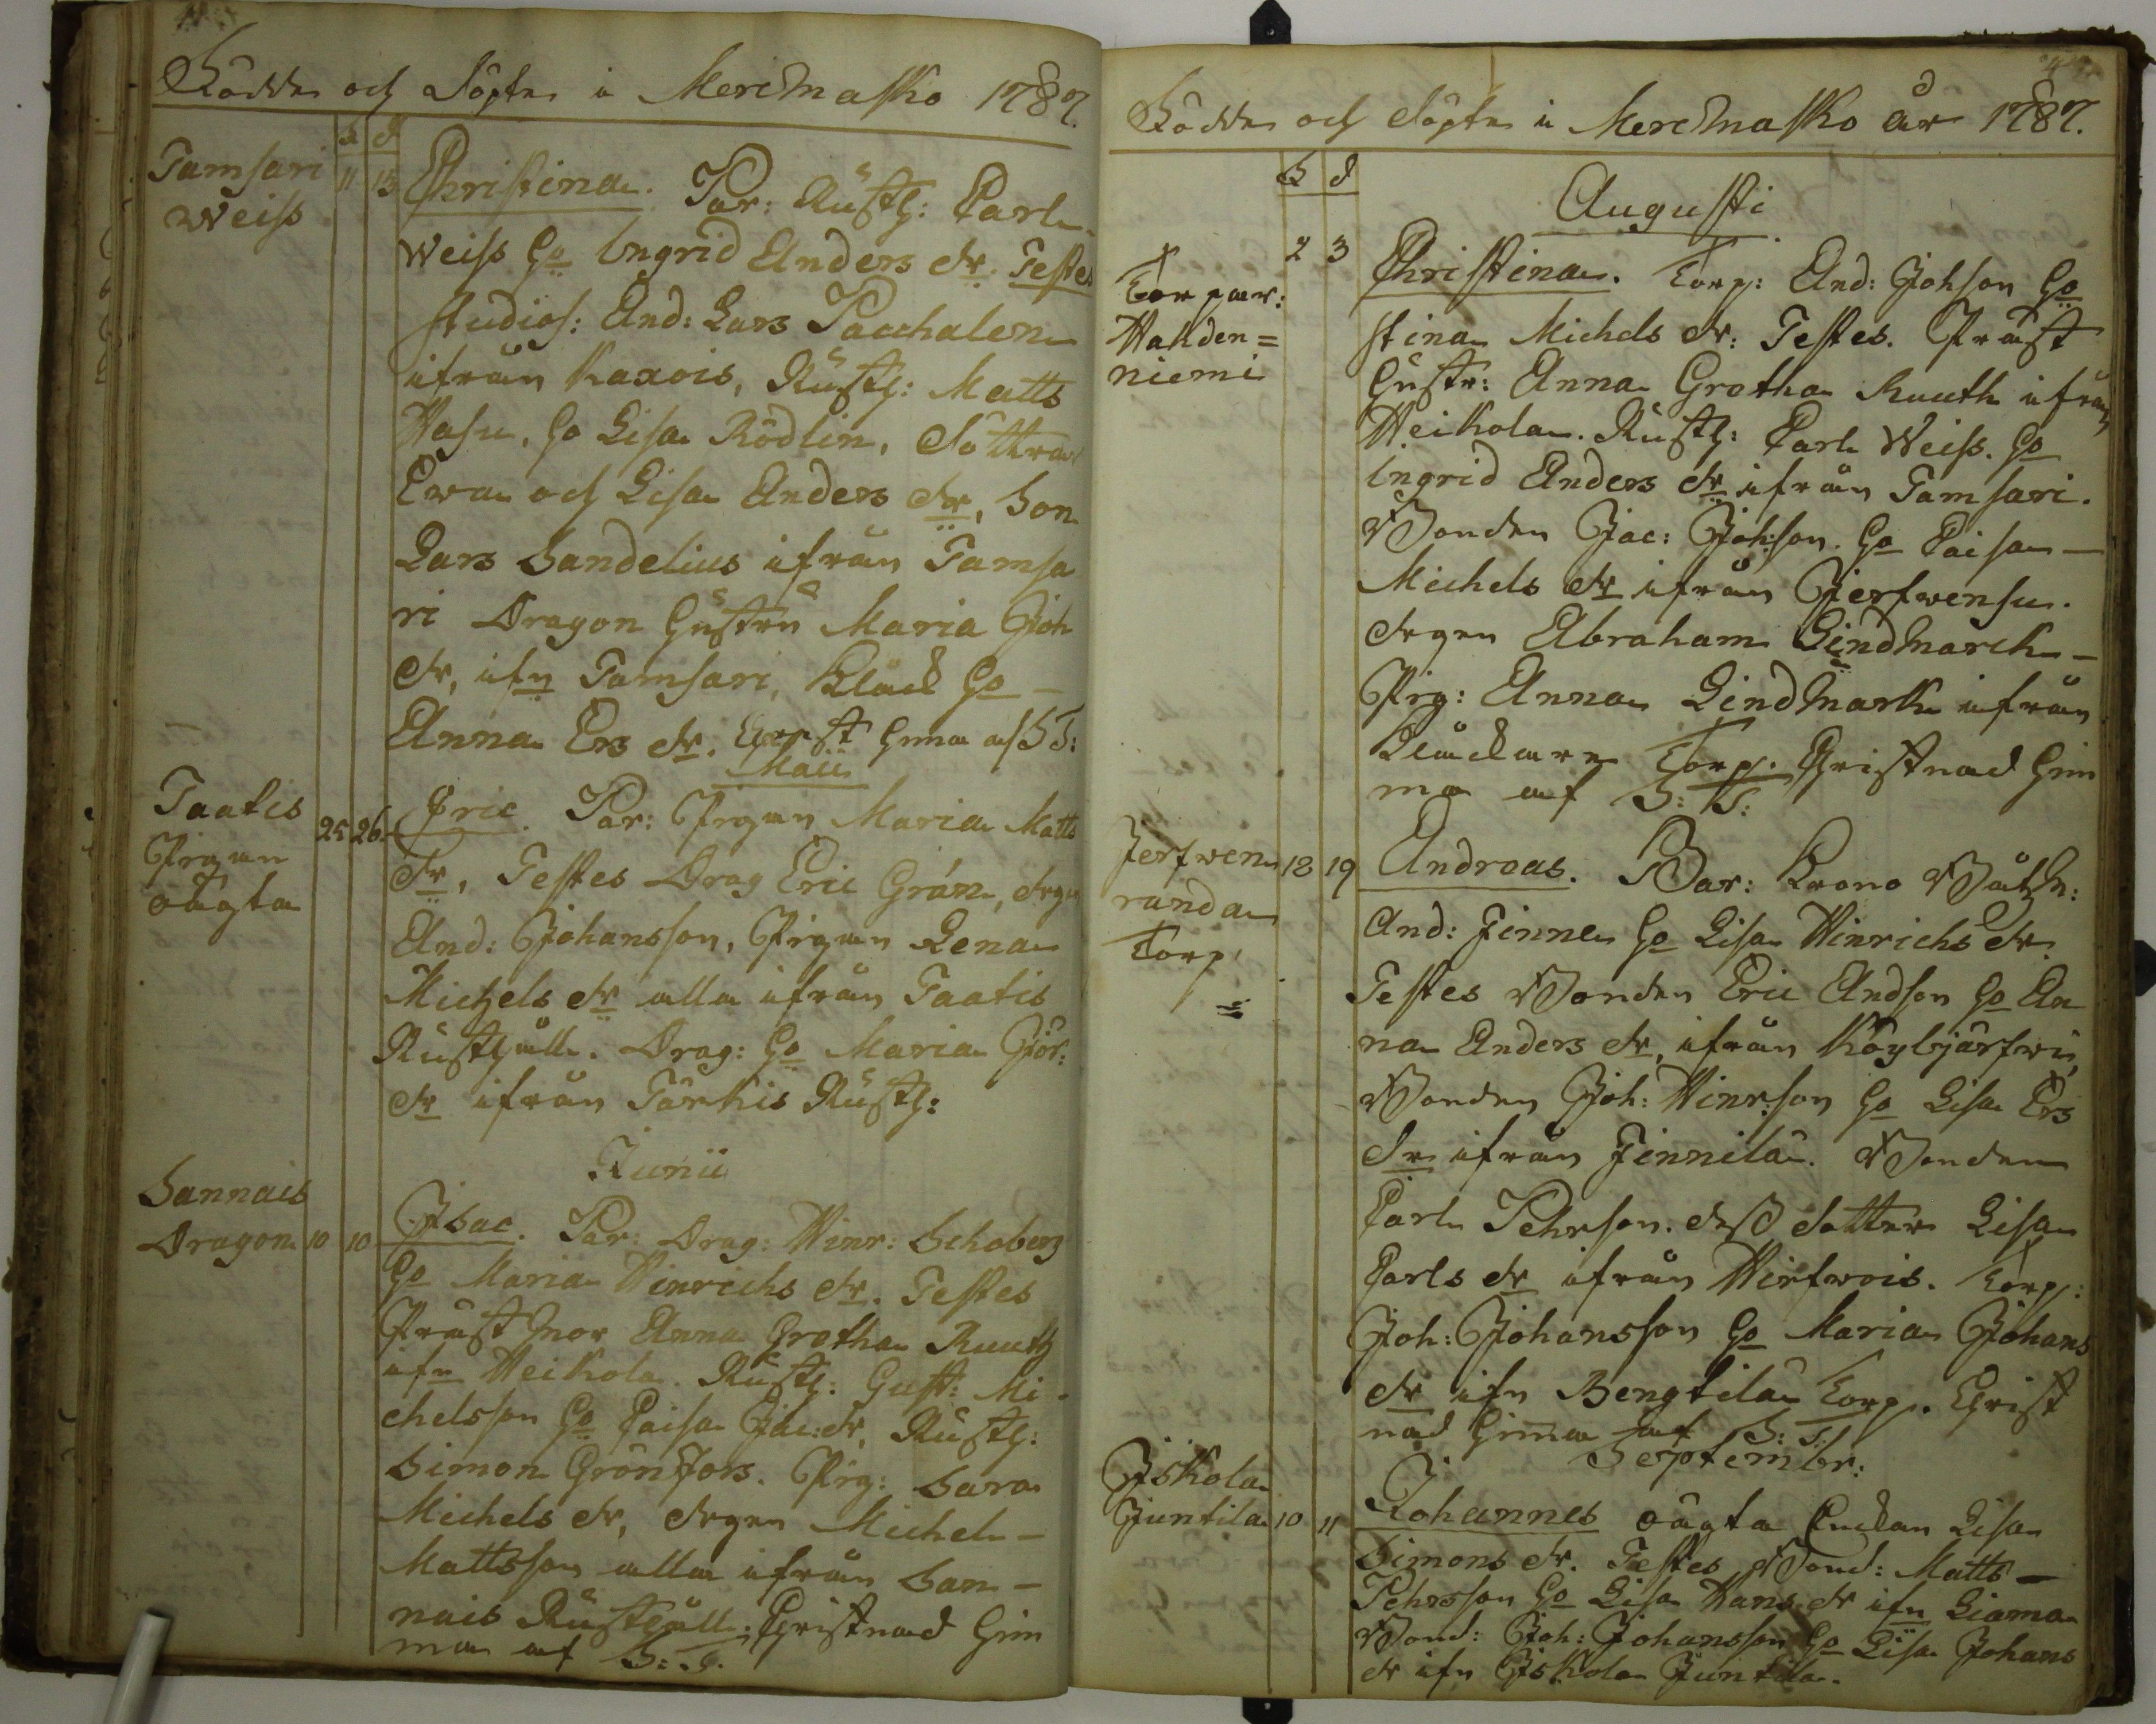 Födde och Döpte i MeriMasko 1787.
b d
Tamsari
Weiss
11 13 Christina. Par: Rusth: Carl
Weiss Ho Ingrid Anders dr. Testes
studios: And: Lars Pacchalen
ifrån Kaxois, Rusth: Matts
Hasu, Ho Lisa Rödlin, Döttrar
Ewa och Lisa Anders dr, Son
Lars Sandelius ifrån Tamsa
ri Dragon hustru Maria Joh
dr, ifn Tamsari, Klock Ho
Anna Ers dr. hema af S:T:
Maii
Taatis
Pigan
oägta
25 26 Eric. Par: Pigan Maria Matts
dr, Testes Drag Eric Grån, drgn
And: Johansson, Pigan Lena
Michels dr alla ifrån Taatis
Rusthåll. Drag: Ho Maria Jör:
dr ifrån Tarkis Rusth:
Junii
Sannais
Dragon 10 10
Isac. Par: Drag: Hinr: Schoberg
Ho Maria Hinrichs dr. Testes
Prust mor Anna Gretha Ruuth
ifn Heikola. Rusth: Gust: Mi-
chelsson Ho Caisa Jac: dr, Rusth:
Simon Grönfors. Pig: Sara
Michels dr, drgen Michel
Mattsson alla ifrån San-
nais Rusthåll. Christnad hem
ma af S: T.
Födde och Döpte i MeriMasko år 1787.
b d
Augusti
Torpar:
Hahden=
niemi
2 3 Christina. Torp: And: Johson Ho
Stina Michels dr: Testes. Prust
hustr: Anna Gretha Ruuth ifrån
Heikola. Rusth: Carl Weiss. Ho
Ingrid Anders dr ifrån Tamsari.
Bonden Jac: Johson. Ho Caisa
Michels dr ifrån Jerfwensu.
drgen Abraham LindMarck
Pig: Anna LindMark ifrån
Klockare Torp. Christnad hem
ma af S: T:
Jerfwen
randa
Torp
18 19 Andreas. Par: Krono Båtzm:
And: Finne Ho Lisa Hinrichs dr.
Testes Bonden Eric Andson Ho An
na Anders dr, ifrån Köylijärfwi,
Bonden Joh: Hinrson Ho Lisa Ers
dr ifrån Finnila. Bonden
Carl Pehrson. dess dotter Lisa
Carls dr ifrån Hirfwois. Torp:
Joh: Johansson Ho Maria Johans
dr ifn Bengtila Torp. Christ
nad hemma af S: T:
Septembr:
Iskola
Juntila 10 11
Johannes oägta Enckan Lisa
Simons dr. Testes Bond: Matts
Pehrsson Ho Lisa Hans dr ifn Liama
Bond: Joh: Johansson Ho Lisa Johans
dr ifn Iskola Juntila.